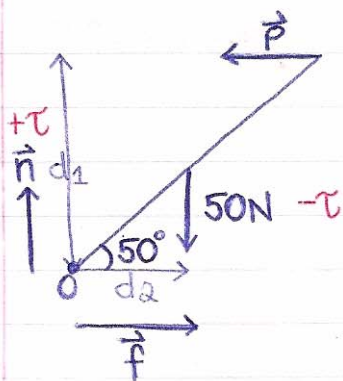 P
+τ
n
d1
50N -τ
50°
O
d2
f